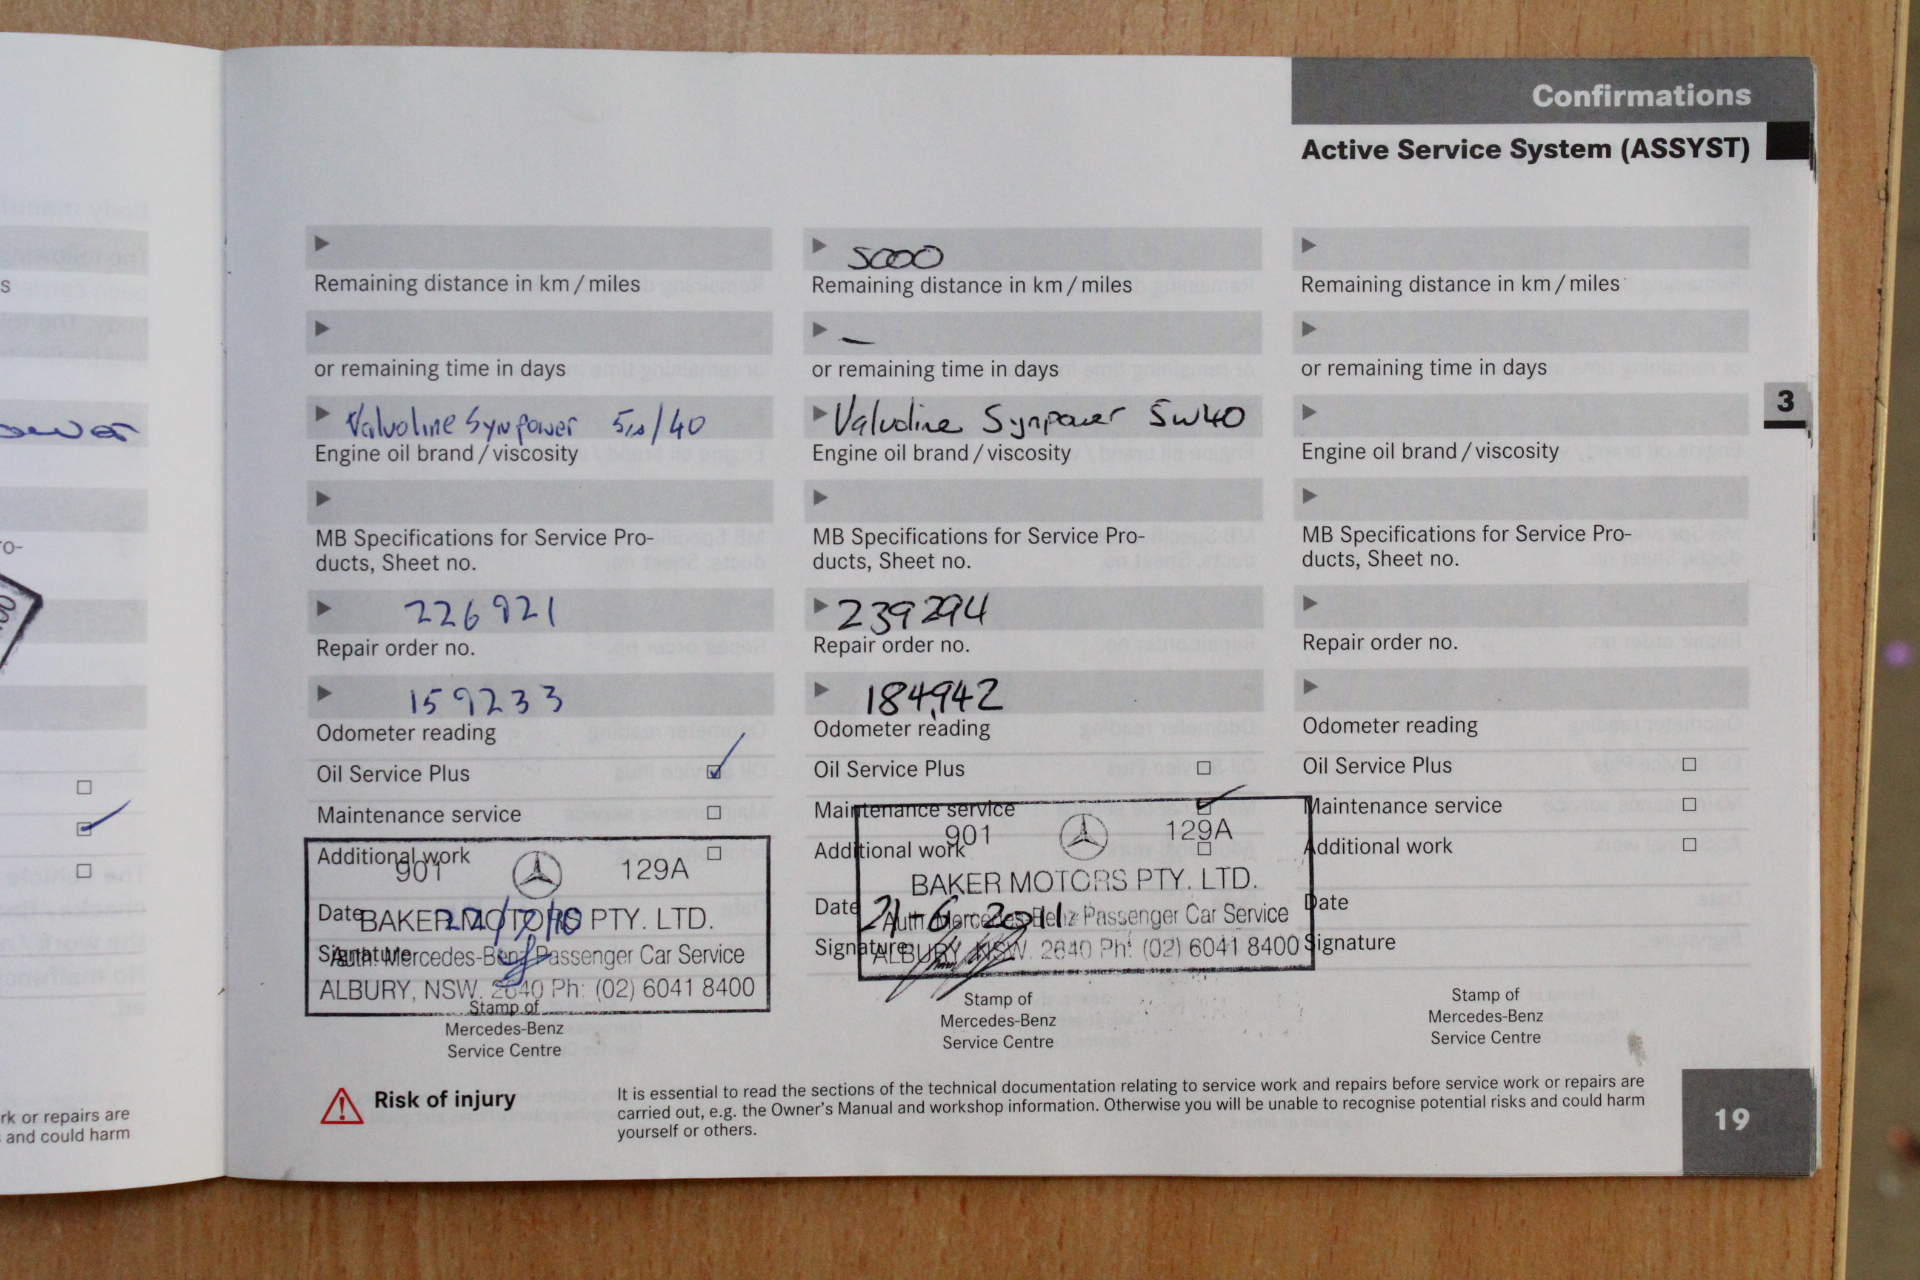 Confirmations
Active Service System (ASSYST)
3
s
ro-
rk or repairs are
and could harm
Remaining distance in km / miles
or remaining time in days
Valvoline Synpower 5w/40
Engine oil brand / viscosity
MB Specifications for Service Pro-
ducts, Sheet no.
226921
Repair order no.
159233
Odometer reading
Oil Service Plus
Maintenance service
Additional work
901 129A
Date 22/7/10
BAKER MOTORS PTY. LTD.
Signature
Auth. Mercedes-Benz Passenger Car Service
ALBURY, NSW. 2640 Ph: (02) 6041 8400
Stamp of
Mercedes-Benz
Service Centre
5000
Remaining distance in km / miles
–
or remaining time in days
Valvoline Synpower 5w40
Engine oil brand / viscosity
MB Specifications for Service Pro-
ducts, Sheet no.
239294
Repair order no.
184,942
Odometer reading
Oil Service Plus
Maintenance service
901 129A
Additional work
BAKER MOTORS PTY. LTD.
Date 21-6-2011
Auth. Mercedes-Benz Passenger Car Service
Signature
ALBURY, NSW. 2640 Ph: (02) 6041 8400
Stamp of
Mercedes-Benz
Service Centre
Remaining distance in km / miles
or remaining time in days
Engine oil brand / viscosity
MB Specifications for Service Pro-
ducts, Sheet no.
Repair order no.
Odometer reading
Oil Service Plus
Maintenance service
Additional work
Date
Signature
Stamp of
Mercedes-Benz
Service Centre
Risk of injury
It is essential to read the sections of the technical documentation relating to service work and repairs before service work or repairs are
carried out, e.g. the Owner's Manual and workshop information. Otherwise you will be unable to recognise potential risks and could harm
yourself or others.
19